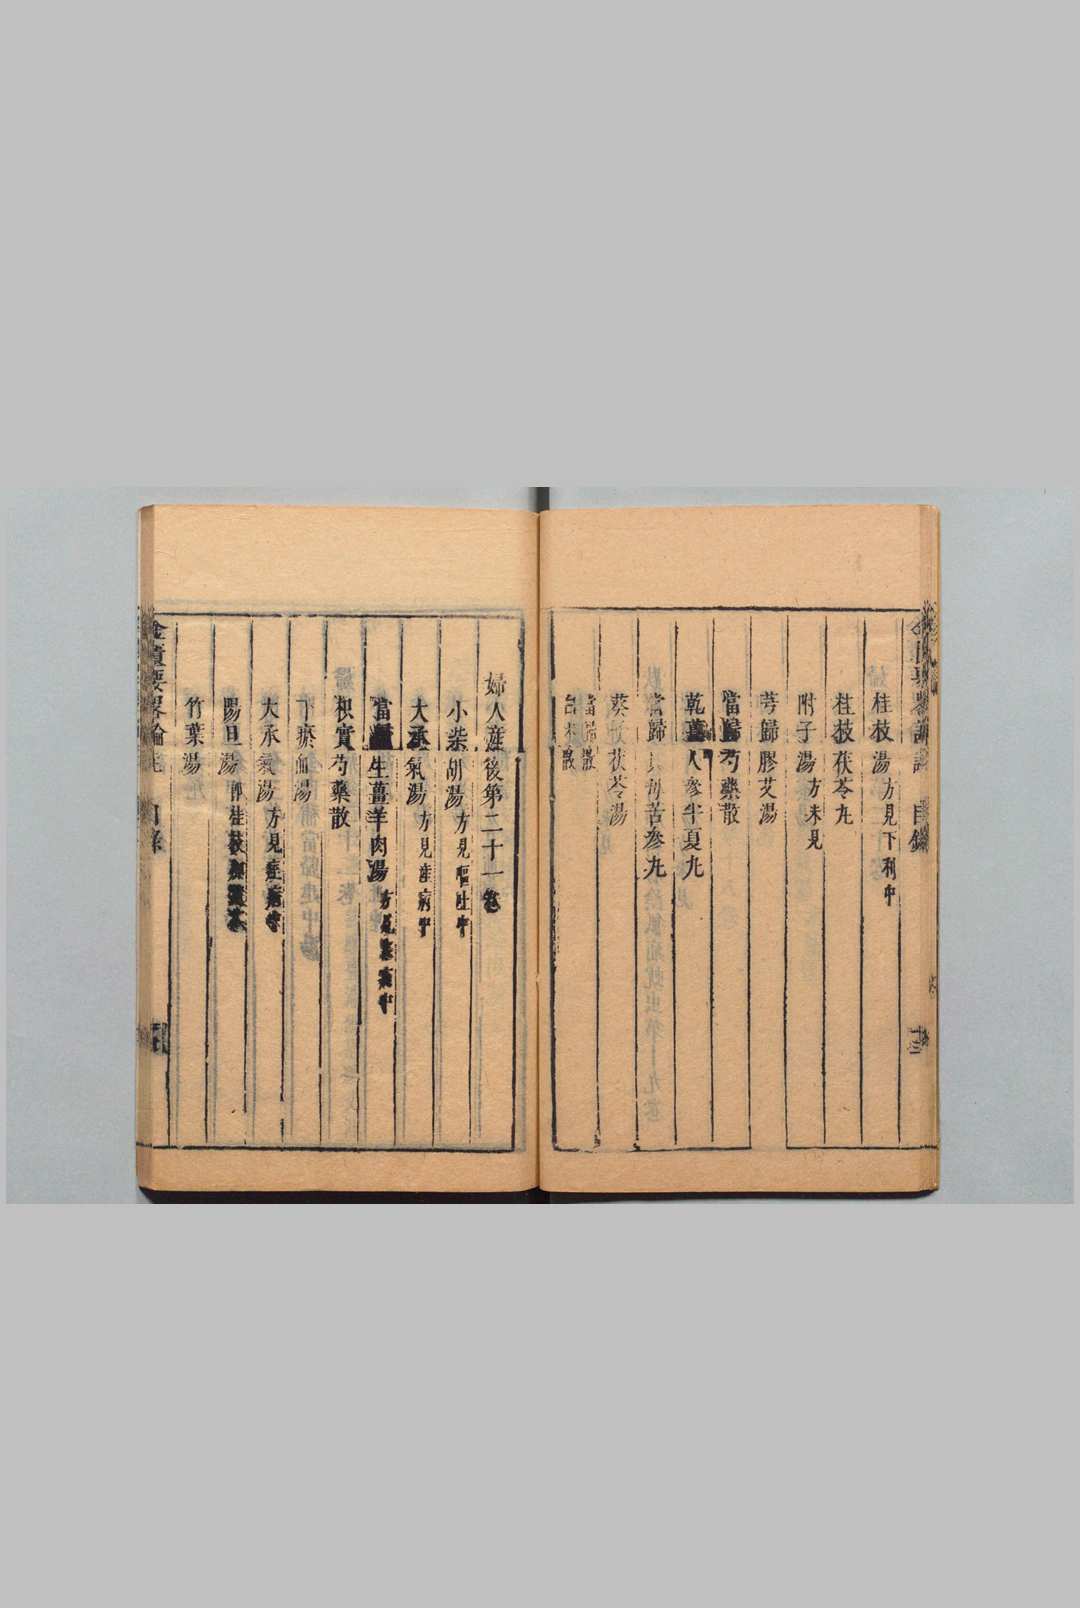 桂枝湯方見下利中
桂枝茯苓丸
附子湯方未見
芎歸膠艾湯
當歸芍藥散
乾薑人參半夏丸
當歸貝母苦參丸
葵子茯苓湯
當歸散
白朮散
婦人產後第二十一卷
小柴胡湯方見嘔吐中
大承氣湯方見痓病中
當歸生薑羊肉湯
枳實芍藥散
下瘀血湯
大承氣湯方見痓病中
陽旦湯即桂枝
竹葉湯
目錄